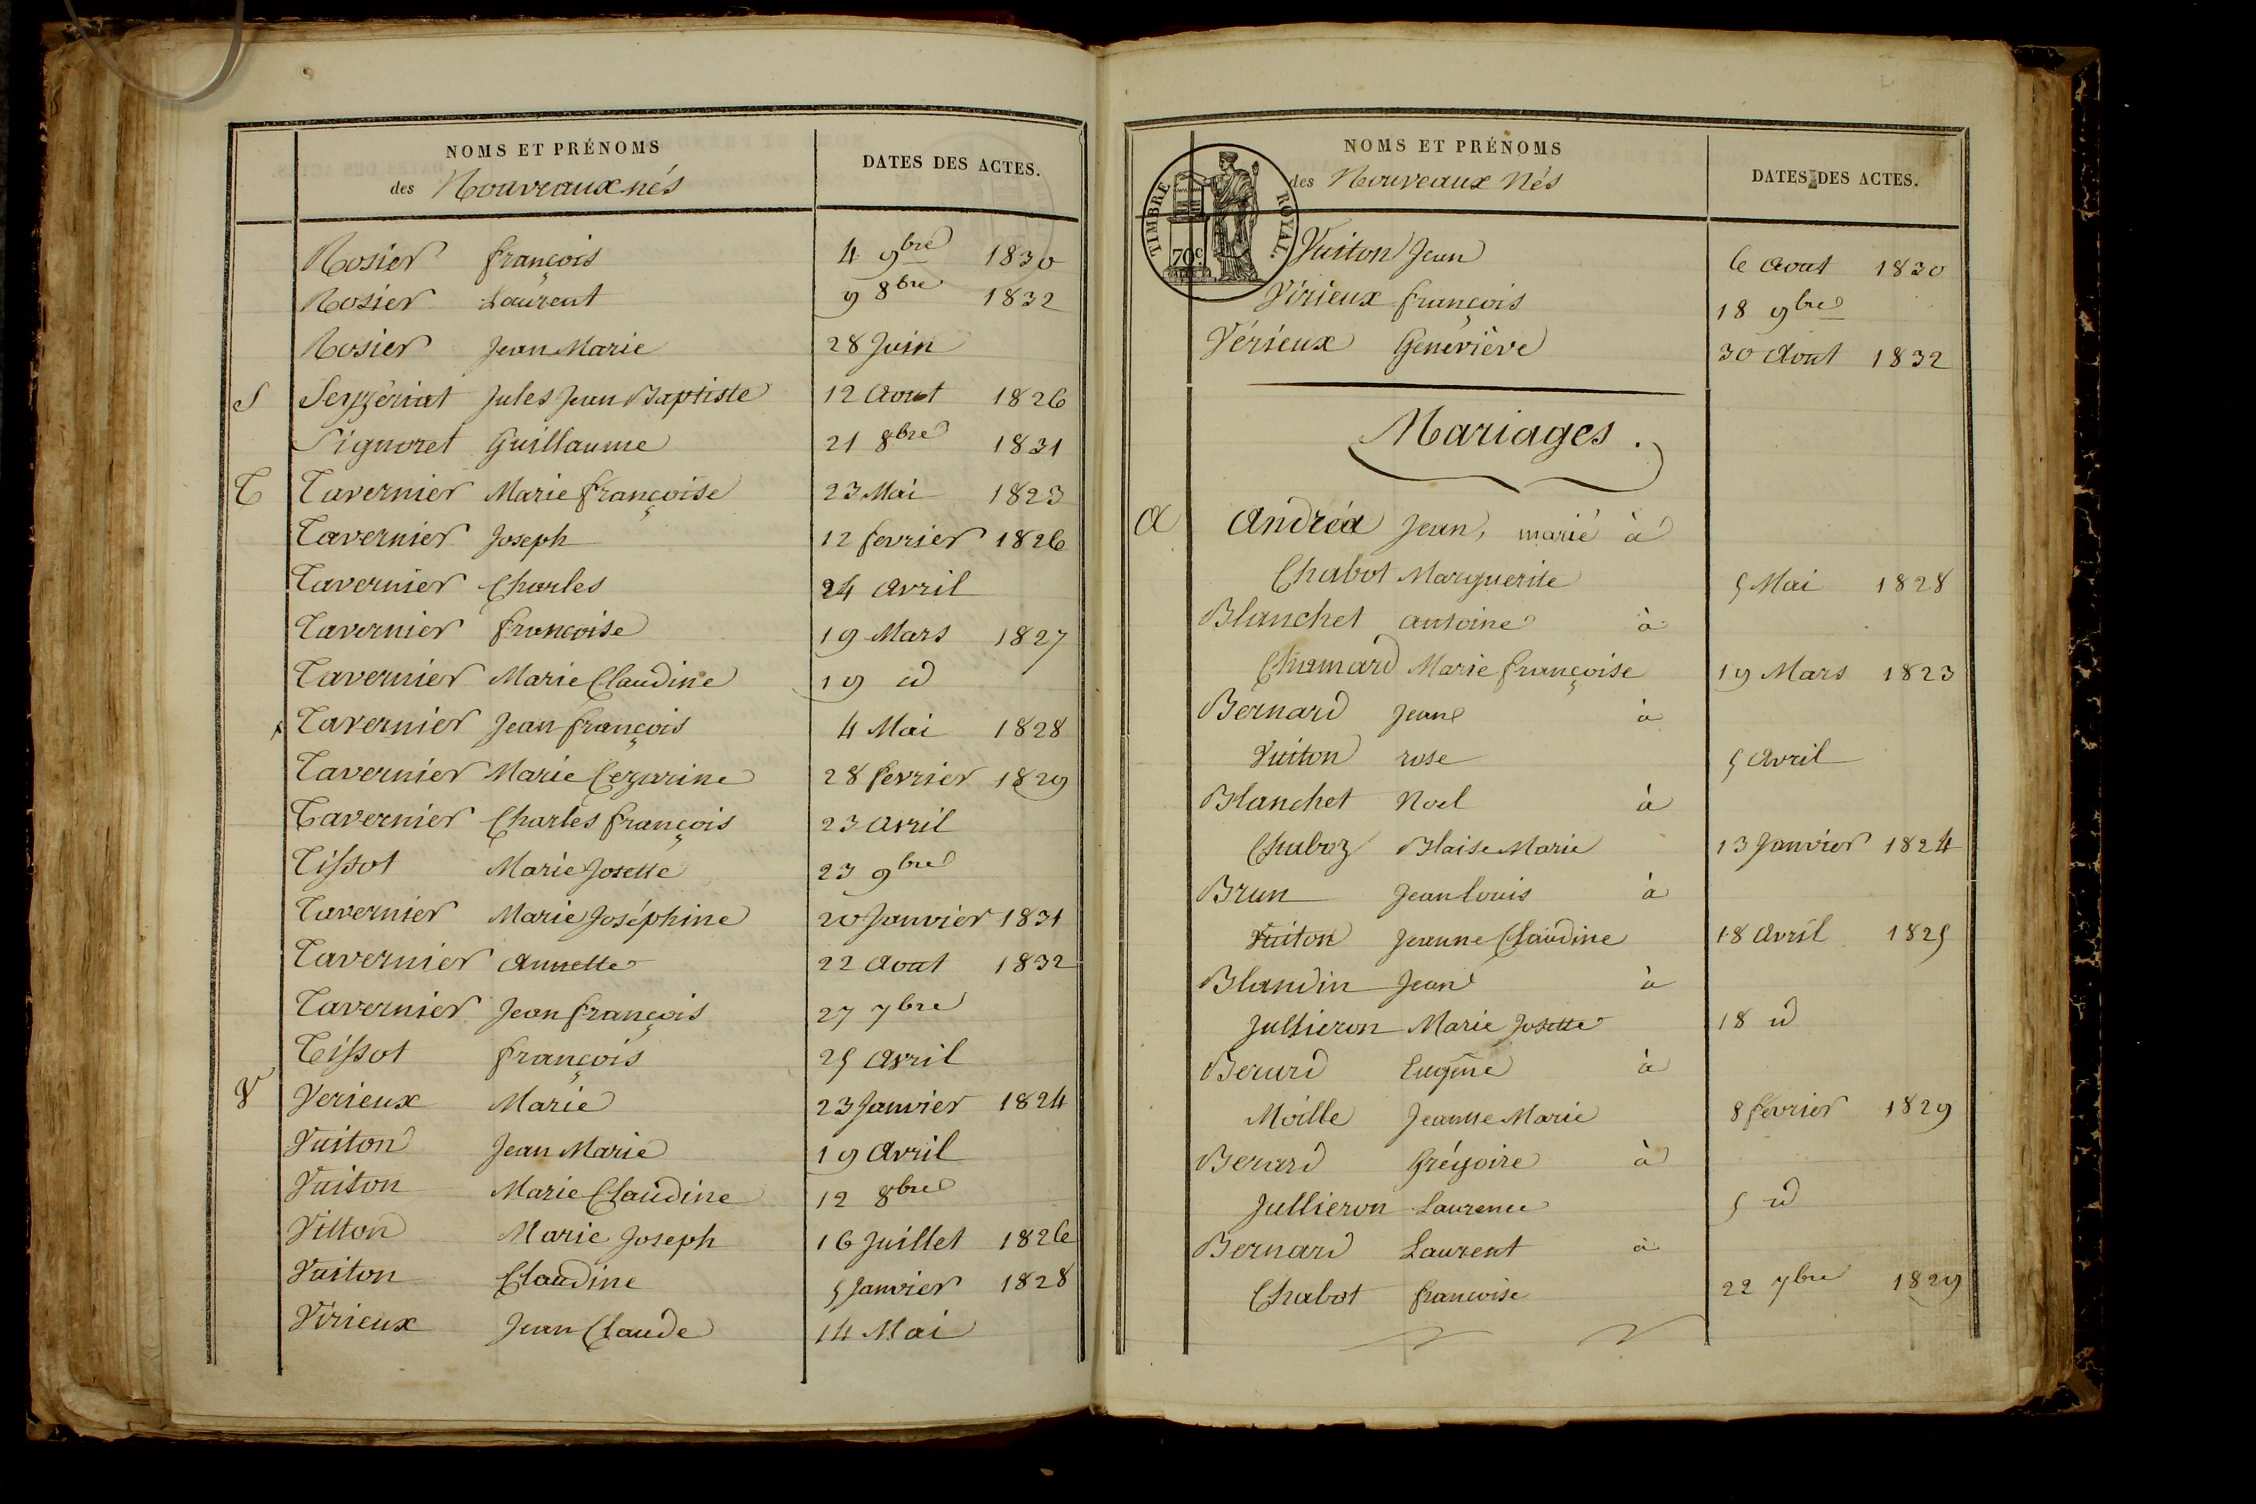 NOMS ET PRÉNOMS
des Nouveaux nés
DATES DES ACTES.
Rosier françois 4 9bre 1830
Rosier Laurent 9 8bre 1832
Rosier Jean Marie 28 Juin
S Serpériat Jules Jean Baptiste 12 Aout 1826
Signoret Guillaume 21 8bre 1831
T Tavernier Marie françoise 23 Mai 1823
Tavernier Joseph 12 fevrier 1826
Tavernier Charles 24 Avril
Tavernier françoise 19 Mars 1827
Tavernier Marie Claudine 19 id
Tavernier Jean françois 4 Mai 1828
Tavernier Marie Cezarine 28 fevrier 1829
Tavernier Charles françois 23 Avril
Tissot Marie Josette 23 9bre
Tavernier Marie Joséphine 20 Janvier 1831
Tavernier Annette 22 Aout 1832
Tavernier Jean françois 27 7bre
Tissot françois 25 Avril
V Verieux Marie 23 Janvier 1824
Vuiton Jean Marie 19 Avril
Vuiton Marie Claudine 12 8bre
Vitton Marie Joseph 16 Juillet 1826
Vuiton Claudine 5 Janvier 1828
Virieux Jean Claude 14 Mai
NOMS ET PRÉNOMS
des Nouveaux Nés
DATES DES ACTES.
TIMBRE ROYAL.
70c.
Vuiton Jean 6 Aout 1830
Virieux françois 18 9bre
Vérieux Geneviève 30 Aout 1832
Mariages.
A Andréa Jean, marié à
Chabot Marguerite 5 Mai 1828
Blanchet antoine à
Chamard Marie françoise 19 Mars 1823
Bernard Jean à
Vuiton rose 5 Avril
Blanchet Noel à
Chaboz Blaise Marie 13 Janvier 1824
Brun Jean louis à
Vuiton Jeanne Claudine 18 Avril 1825
Blandin Jean à
Jullieron Marie Josette 18 id
Berard Eugène à
Moille Jeanne Marie 8 février 1829
Berard Grégoire à
Jullieron Laurence 5 id
Bernard Laurent à
Chabot francoise 22 7bre 1829